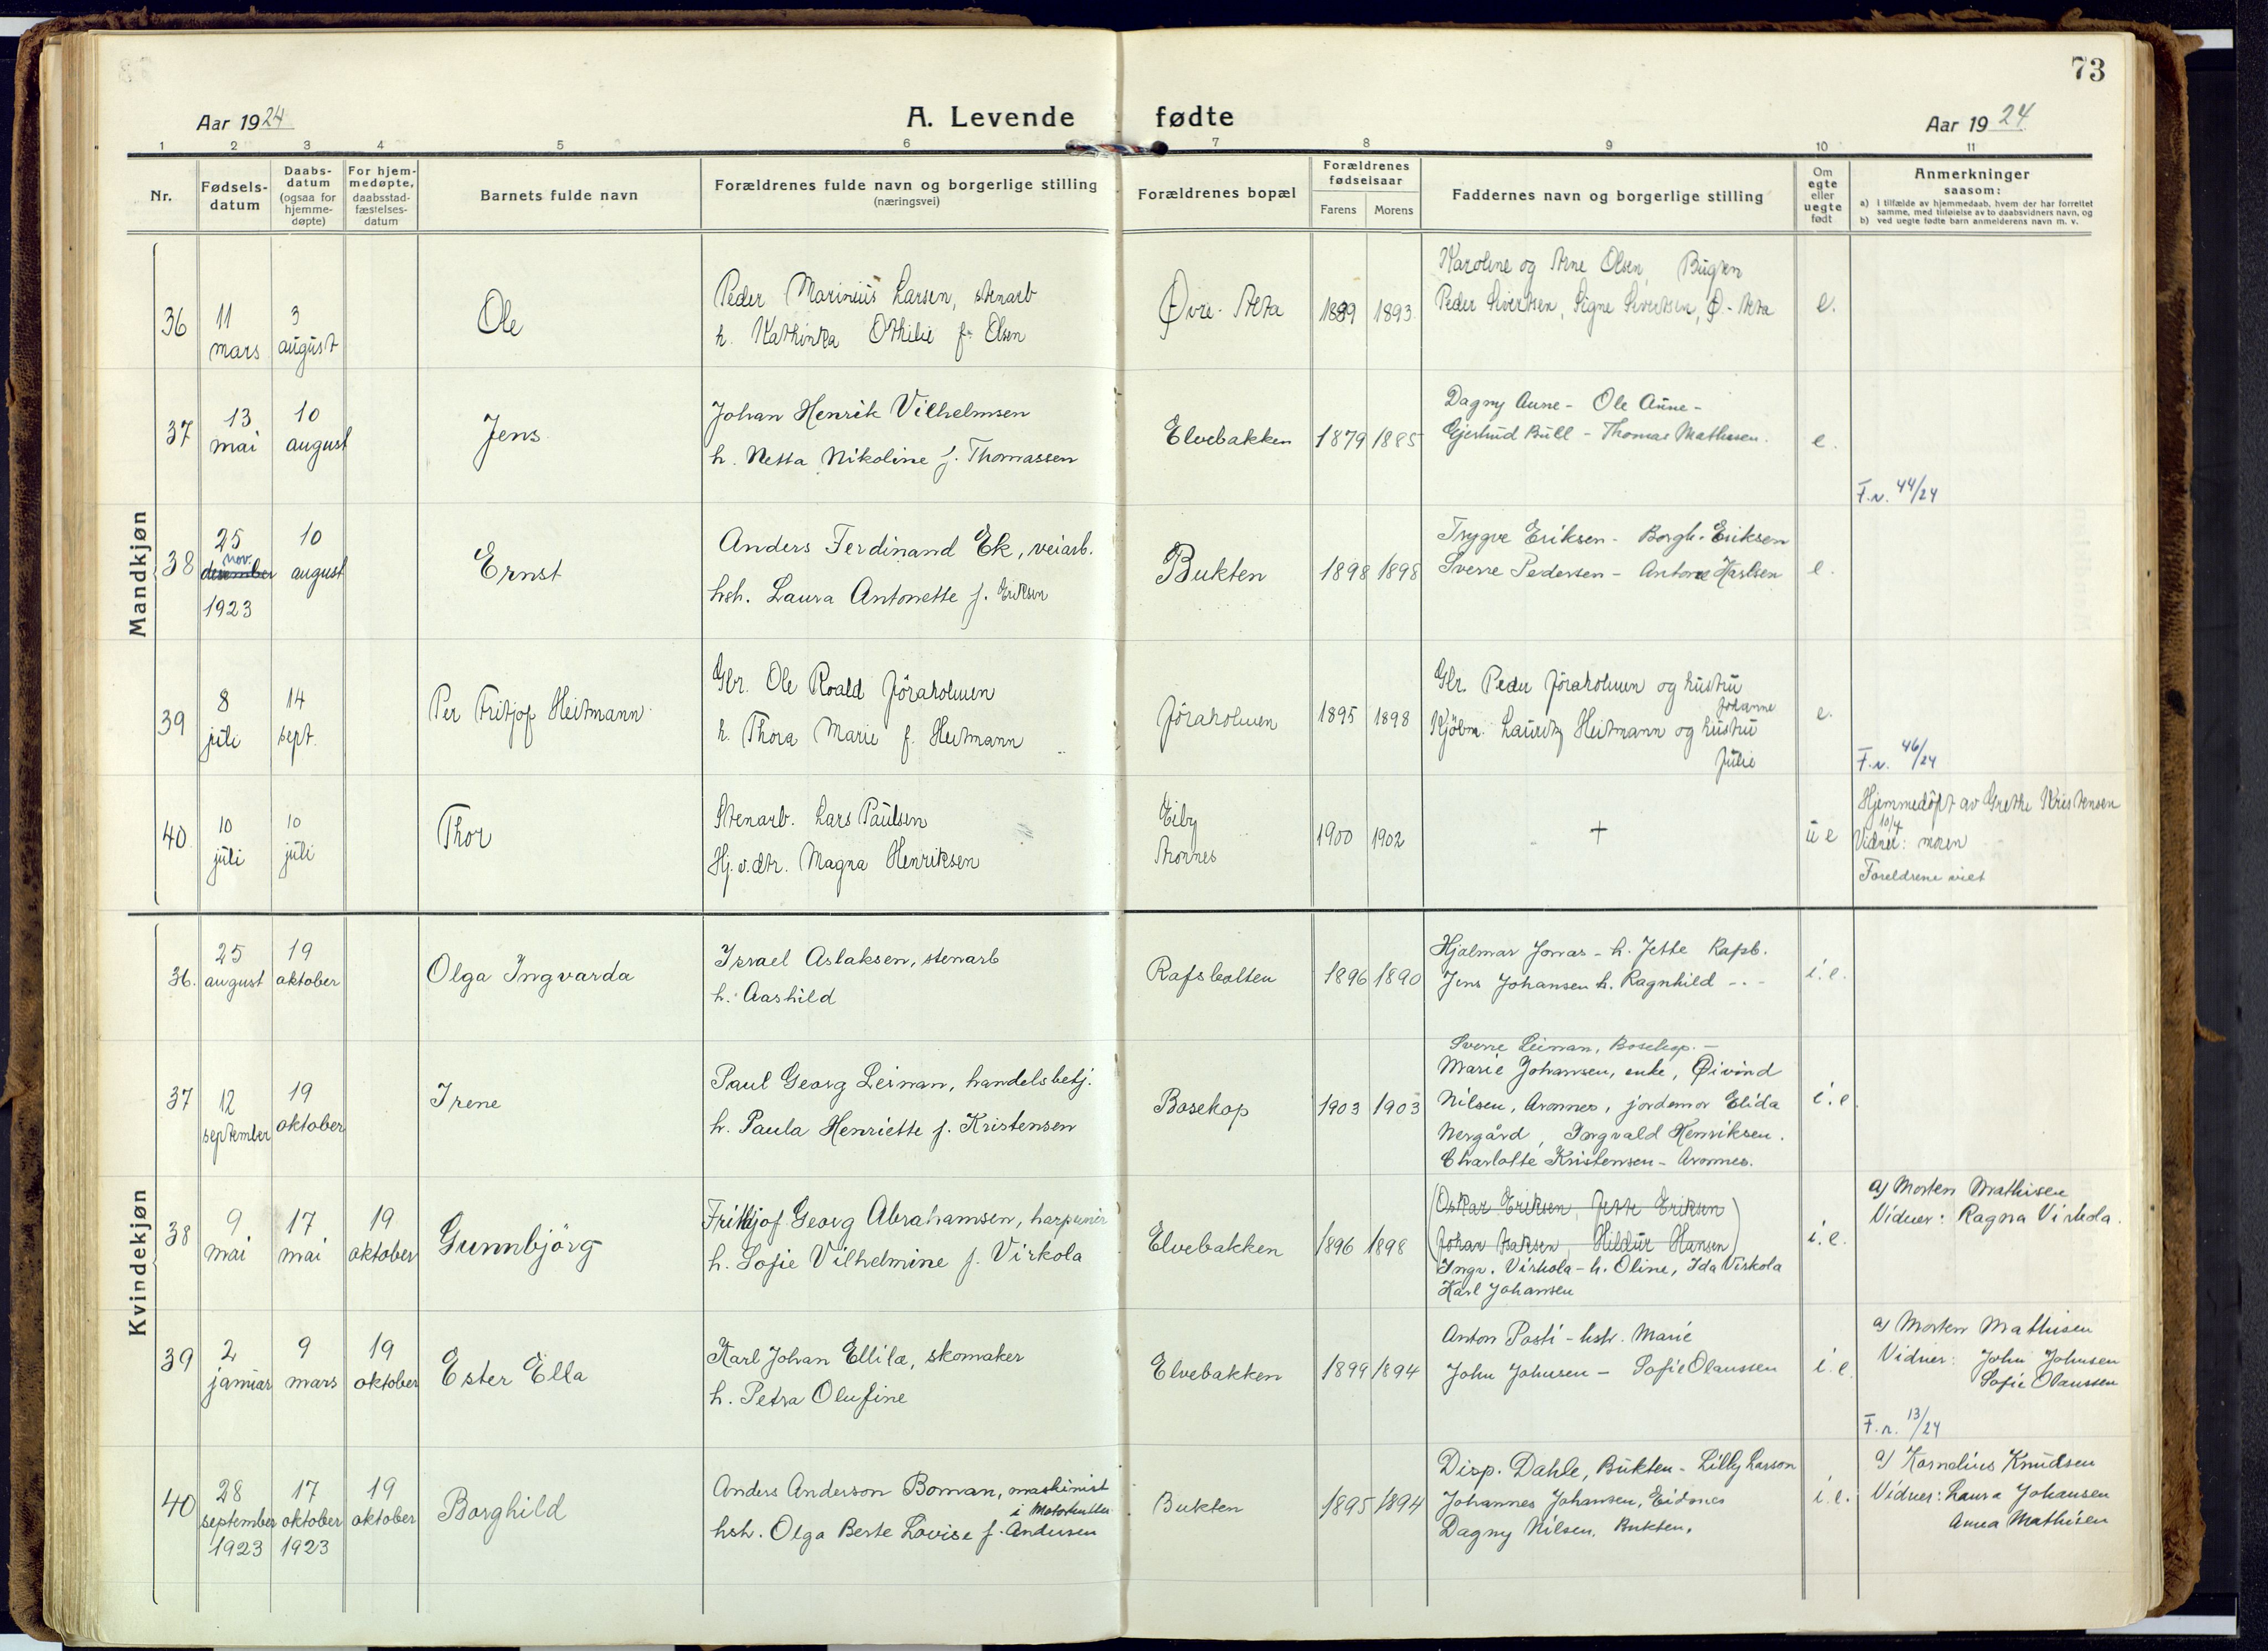 73
Aar 1924
A. Levende fødte
Aar 1924
1 2 3 4 5 6 7 8 9 10 11
Nr.
Fødsels-
datum
Daabs-
datum
(ogsaa for
hjemme-
døpte)
For hjem-
medøpte,
daabsstad-
fæstelses-
datum
Barnets fulde navn
Forældrenes fulde navn og borgerlige stilling
(næringsvei)
Forældrenes bopæl
Forældrenes
fødselsaar
Farens Morens
Faddernes navn og borgerlige stilling
Om
egte
eller
uegte
født
Anmerkninger
saasom:
a) I tilfælde av hjemmedaab, hvem der har forrettet
samme, med tilføielse av to daabsvidners navn, og
b) ved uegte fødte barn anmelderens navn m. v.
Mandkjøn
36
11
mars
3
august
Ole
Peder Marinius Larsen, stenarb
h. Kathinka Othilie f. Olsen
Øvre-Alta
1889 1893
Karoline og Arne Olsen, Bugten
Peder Sivertsen, Signe Sivertsen, Ø-Alta
e.
37
13
mai
10
august
Jens
Johan Henrik Vilhelmsen
h. Netta Nikoline f. Thomassen
Elvebakken
1879 1885
Dagny Aune - Ole Aune -
Gjertrud Bull - Thomas Mathisen.
e.
F.n. 44/24
38
25
nov.
desember
1923
10
august
Ernst
Anders Ferdinand Ek, veiarb.
hsh. Laura Antonette f. Eriksen
Bukten
1898 1898
Trygve Eriksen - Borgh. Eriksen
Sverre Pedersen - Antone Karlsen
e.
39
8
juli
14
sept.
Per Fritjof Heitmann
Gbr. Ole Roald Jöraholmen
h. Thora Marie f. Heitmann
Jöraholmen
1895 1898
Gbr. Peder Jöraholmen og hustru
Johanne
Kjöbm. Lauritz Heitmann og hustru
Julie
e.
F.n. 46/24
40
10
juli
10
juli
Thor
Stenarb. Lars Paulsen
Hj.v.dtr. Magna Henriksen
Eiby
Aronnes
1900 1902
+
u e
Hjemmedöpt av Grethe Kristensen
10/7
Vidner: moren
Foreldrene viet
Kvindekjøn
36.
25
august
19
oktober
Olga Ingvarda
Israel Aslaksen, stenarb
h. Aashild
Rafsbotten
1896 1890
Hjalmar Jonas - h. Jette Rafsb.
Jens Johansen h. Ragnhild - . -
i.e.
37
12
september
19
oktober
Irene
Paul Georg Leinan, handelsbetj.
h. Paula Henriette f. Kristensen
Bosekop
1903 1903
Sverre Leinan, Bosekop. -
Marie Johansen, enke, Øivind
Nilsen, Aronnes, jordemor Elida
Nergård, Ingvald Henriksen.
Charlotte Kristensen - Aronnes.
i.e.
38
9
mai
17
mai
19
oktober
Gunnbjörg
Frithjof Georg Abrahamsen, harpunér
h. Sofie Vilhelmine f. Virkola
Elvebakken
1896 1898
(Oskar Eriksen, Jette Eriksen)
(Johan Isaksen, Hildur Hansen)
Ingv. Virkola - h. Oline, Ida Virkola
Karl Johansen
i.e.
a) Morten Mathisen
Vidner: Ragna Virkola.
39
2
januar
9
mars
19
oktober
Ester Ella
Karl Johan Ellila, skomaker
h. Petra Olufine
Elvebakken
1899 1894
Anton Posti - hstr. Marie
John Johnsen - Sofie Olaussen
i.e.
a) Morten Mathisen
Vidner: John Johnsen
Sofie Olaussen
F.n. 13/24
40
28
september
1923
17
oktober
1923
19
oktober
Borghild
Anders Anderson Boman, maskinist
i Motorkutter
hsh. Olga Berte Lovise f. Andersen
Bukten
1895 1894
Disp. Dahle, Bukten - Lilly Larson
Johannes Johansen, Eidsnes
Dagny Nilsen, Bukten.
i.e.
a) Kornelius Knudsen
Vidner: Laura Johansen
Anna Mathisen